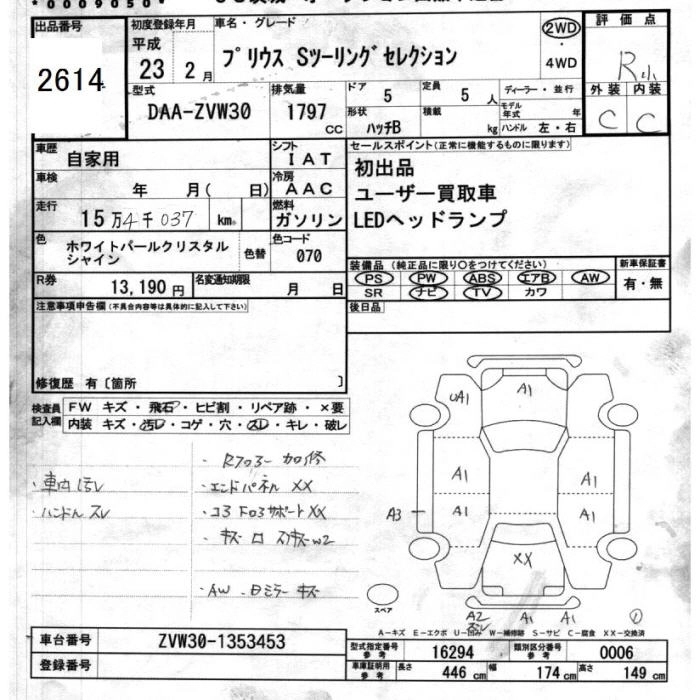 *0009050*
出品番号 初度登録年月 車名・グレード 2WD ・ 4WD 評価点
2614 平成 23 2月 プリウス Sツーリングセレクション R小
型式 排気量 ドア 定員 ディーラー・並行 外装 内装
DAA-ZVW30 1797 CC 5 5 人 モデル年式 年 C C
形状 積載 ハンドル 左・右
ハッチB kg
車歴 シフト セールスポイント(正常に機能するものに限ります)
自家用 IAT 初出品
車検 冷房
年 月( 日) AAC ユーザー買取車
走行 燃料
15万4千037 km ガソリン LEDヘッドランプ
色 色替 色コード
ホワイトパールクリスタル
シャイン 070
装備品(純正品に限り○をつけてください) 新車保証書
R券 名変通知期限 PS PW ABS エアB AW 有・無
13,190円 月 日 SR ナビ TV カワ
注意事項申告欄(不具合内容等は具体的に記入して下さい) 後日品
修復歴 有〔箇所 〕
検査員 FW キズ・飛石・ヒビ割・リペア跡・×要
記入欄 内装 キズ・汚レ・コゲ・穴・スレ・キレ・破レ
・車内汚レ
・ハンドル スレ
・エンドパネル XX
・コラ F03サポートXX
・AW
キズ
UA1 A1 A1
A1 A1
A3 A1 A1
XX
スペア
A2 A1 A1 ①
A-キズ E-エクボ U-凹み W-補修跡 S-サビ C-腐食 XX-交換済
車台番号 ZVW30-1353453
登録番号
型式指定番号 参考 16294 類別区分番号 参考 0006
車庫証明用 参考 長さ 446 cm 幅 174 cm 高さ 149 cm